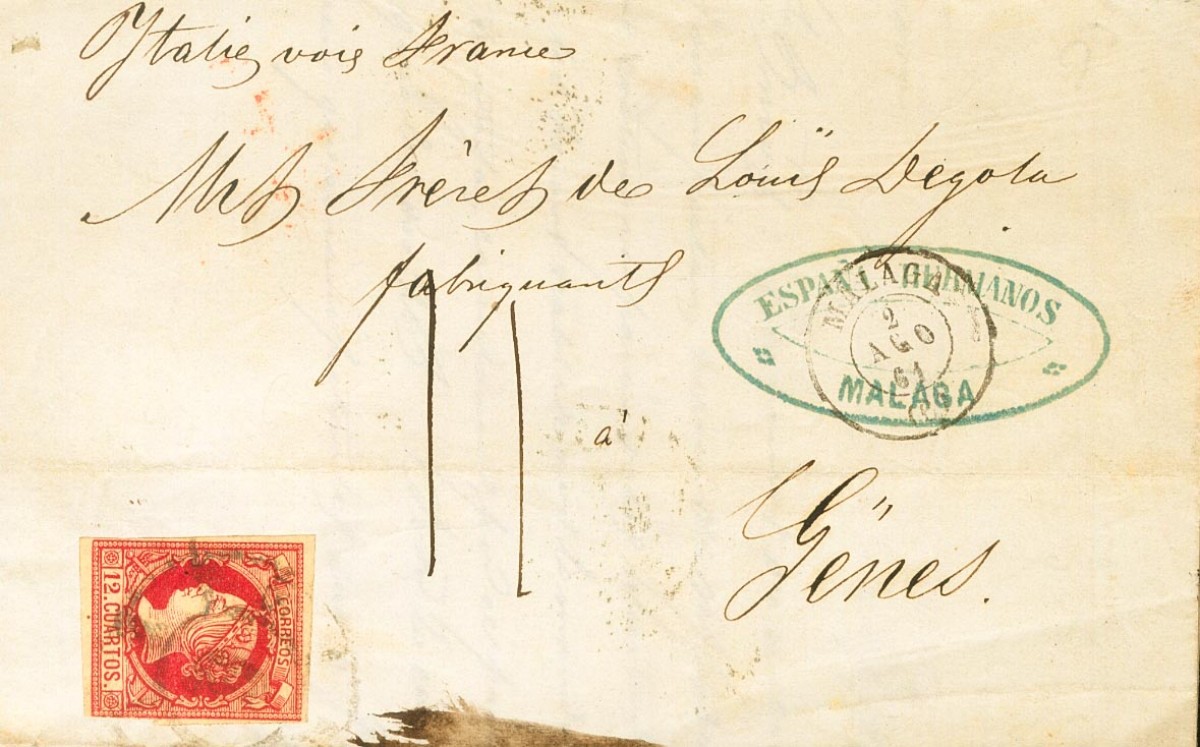 Italie voie France
Mrs Frères de Loüis Degola
fabriquants
ESPAÑA HERMANOS
MALAGA
MALAGA
2
AGO
61
11
à
Gënes.
CORREOS
12. CUARTOS.